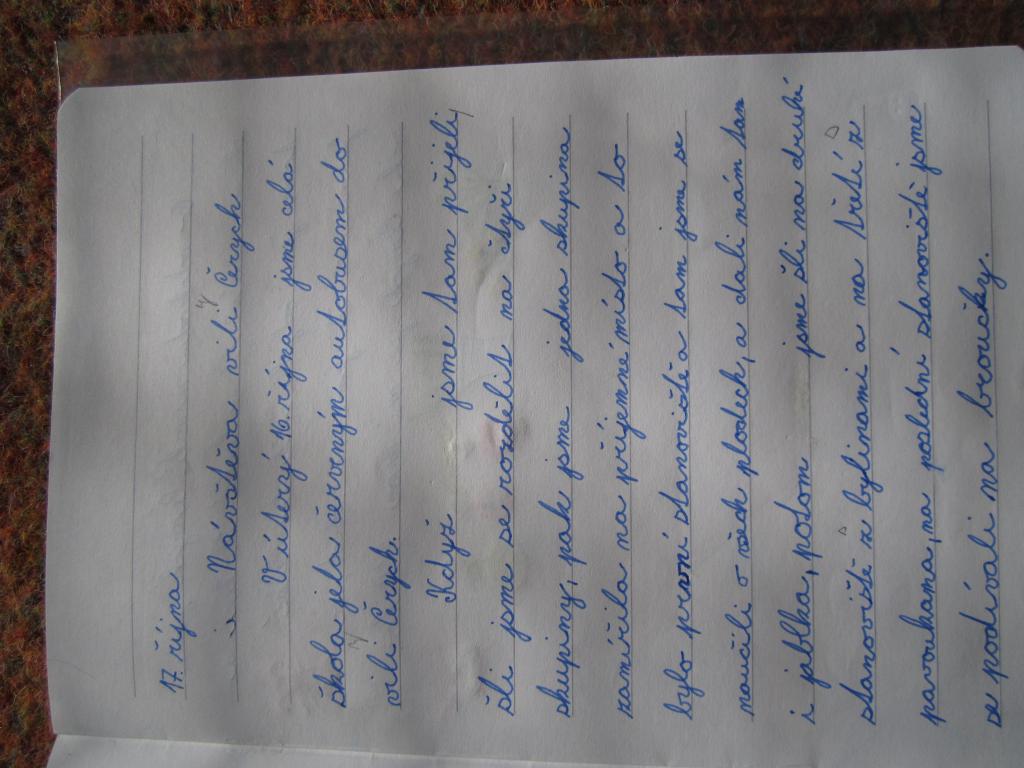 17. října
Návštěva vili Čerych
V úterý 16. října jsme celá
škola jela červeným autobusem do
vili Čerych.
Když jsme tam přijeli
šli jsme se rozdělit na čtyři
skupiny, pak jsme jedna skupina
zamířila na příjemné místo a to
bylo první stanoviště a tam jsme se
naučili o všech plodech, a dali nám tam
i jablka, potom jsme šli na druhé
stanoviště z bylinami a na třetí z
pavoukama, na poslední stanoviště jsme
se podívali na broučky.